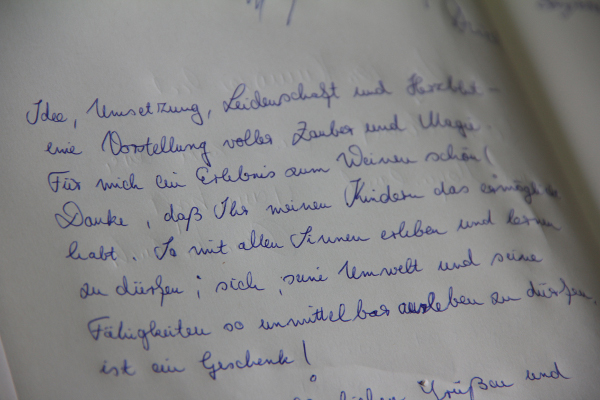 Idee, Umsetzung, Leidenschaft und Herzblut –
eine Vorstellung voller Zauber und Magie.
Für mich ein Erlebnis zum Weinen schön!
Danke, daß Ihr meinen Kindern das ermöglicht
habt. So mit allen Sinnen erleben und lernen
zu dürfen; sich, seine Umwelt und seine
Fähigkeiten so unmittelbar ausleben zu dürfen,
ist ein Geschenk!
lieben Grüßen und